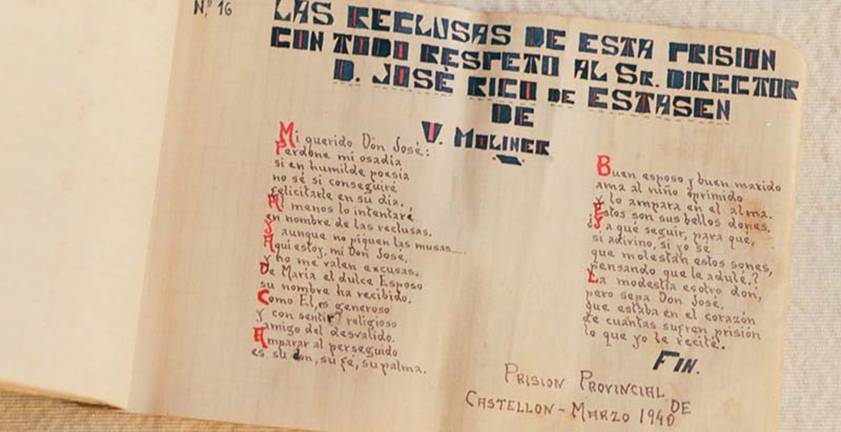 N.º 16
LAS RECLUSAS DE ESTA PRISION
CON TODO RESPETO AL SR. DIRECTOR
D. JOSÈ RICO DE ESTASEN
DE
V. MOLINER
Mi querido Don José:
Perdone mi osadía
si en humilde poesía
no sé si conseguiré
felicitarle en su día.
Al menos lo intentaré
en nombre de las reclusas.
Y aunque no piquen las musas....
Aquí estoy, mi Don José,
y no me valen excusas.
De María el dulce Esposo
su nombre ha recibido.
Como El, es generoso
y con sentir religioso
amigo del desvalido.
Amparar al perseguido
es su don, su fe, su palma.
Buen esposo y buen marido
ama al niño oprimido
y lo ampara en el alma.
Estos son sus bellos dones.
¿Y a qué seguir, para que,
si adivino, si yo sé
que molestan estos sones,
pensando que le adulé.?
La modestia es otro don,
pero sepa Don José,
que estaba en el corazón
de cuantas sufren prisión
lo que yo le recité.
FIN.
PRISION PROVINCIAL DE
CASTELLON - MARZO 1940